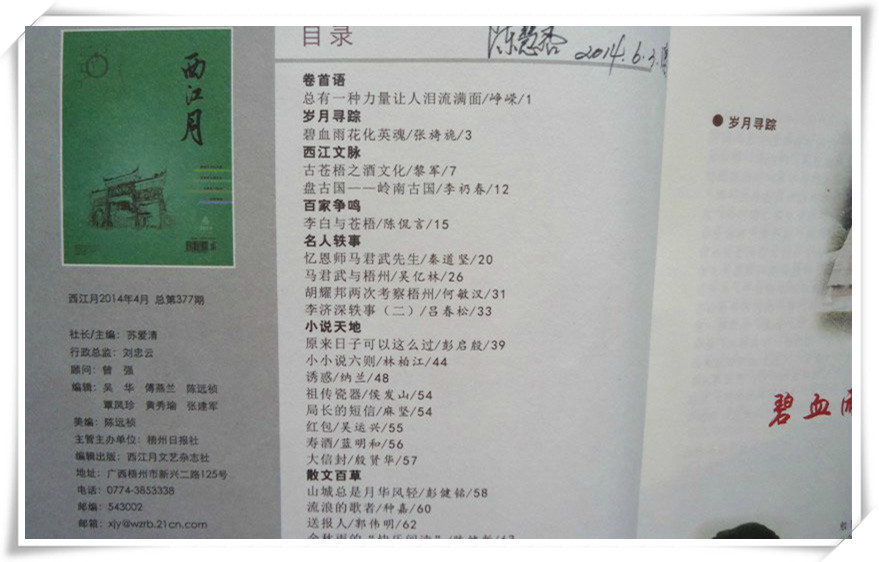 西江月
西江月2014年4月 总第377期
社长/主编: 苏爱清
行政总监: 刘忠云
顾问: 曾 强
编辑: 吴 华 傅燕兰 陈远桢
覃凤珍 黄秀瑜 张建军
美编: 陈远桢
主管主办单位: 梧州日报社
编辑出版: 西江月文艺杂志社
地址: 广西梧州市新兴二路125号
电话: 0774-3853338
邮编: 543002
邮箱: xjy@wzrb.21cn.com
目录
2014.6.3
卷首语
总有一种力量让人泪流满面/峥嵘/1
岁月寻踪
碧血雨花化英魂/张旖旎/3
西江文脉
古苍梧之酒文化/黎军/7
盘古国——岭南古国/李礽春/12
百家争鸣
李白与苍梧/陈侃言/15
名人轶事
忆恩师马君武先生/秦道坚/20
马君武与梧州/吴亿林/26
胡耀邦两次考察梧州/何敏汉/31
李济深轶事(二)/吕春松/33
小说天地
原来日子可以这么过/彭启殷/39
小小说六则/林柏江/44
诱惑/纳兰/48
祖传瓷器/侯发山/54
局长的短信/麻坚/54
红包/吴运兴/55
寿酒/蓝明和/56
大信封/殷贤华/57
散文百草
山城总是月华风轻/彭健铭/58
流浪的歌者/种嘉/60
送报人/郭伟明/62
●岁月寻踪
碧血雨